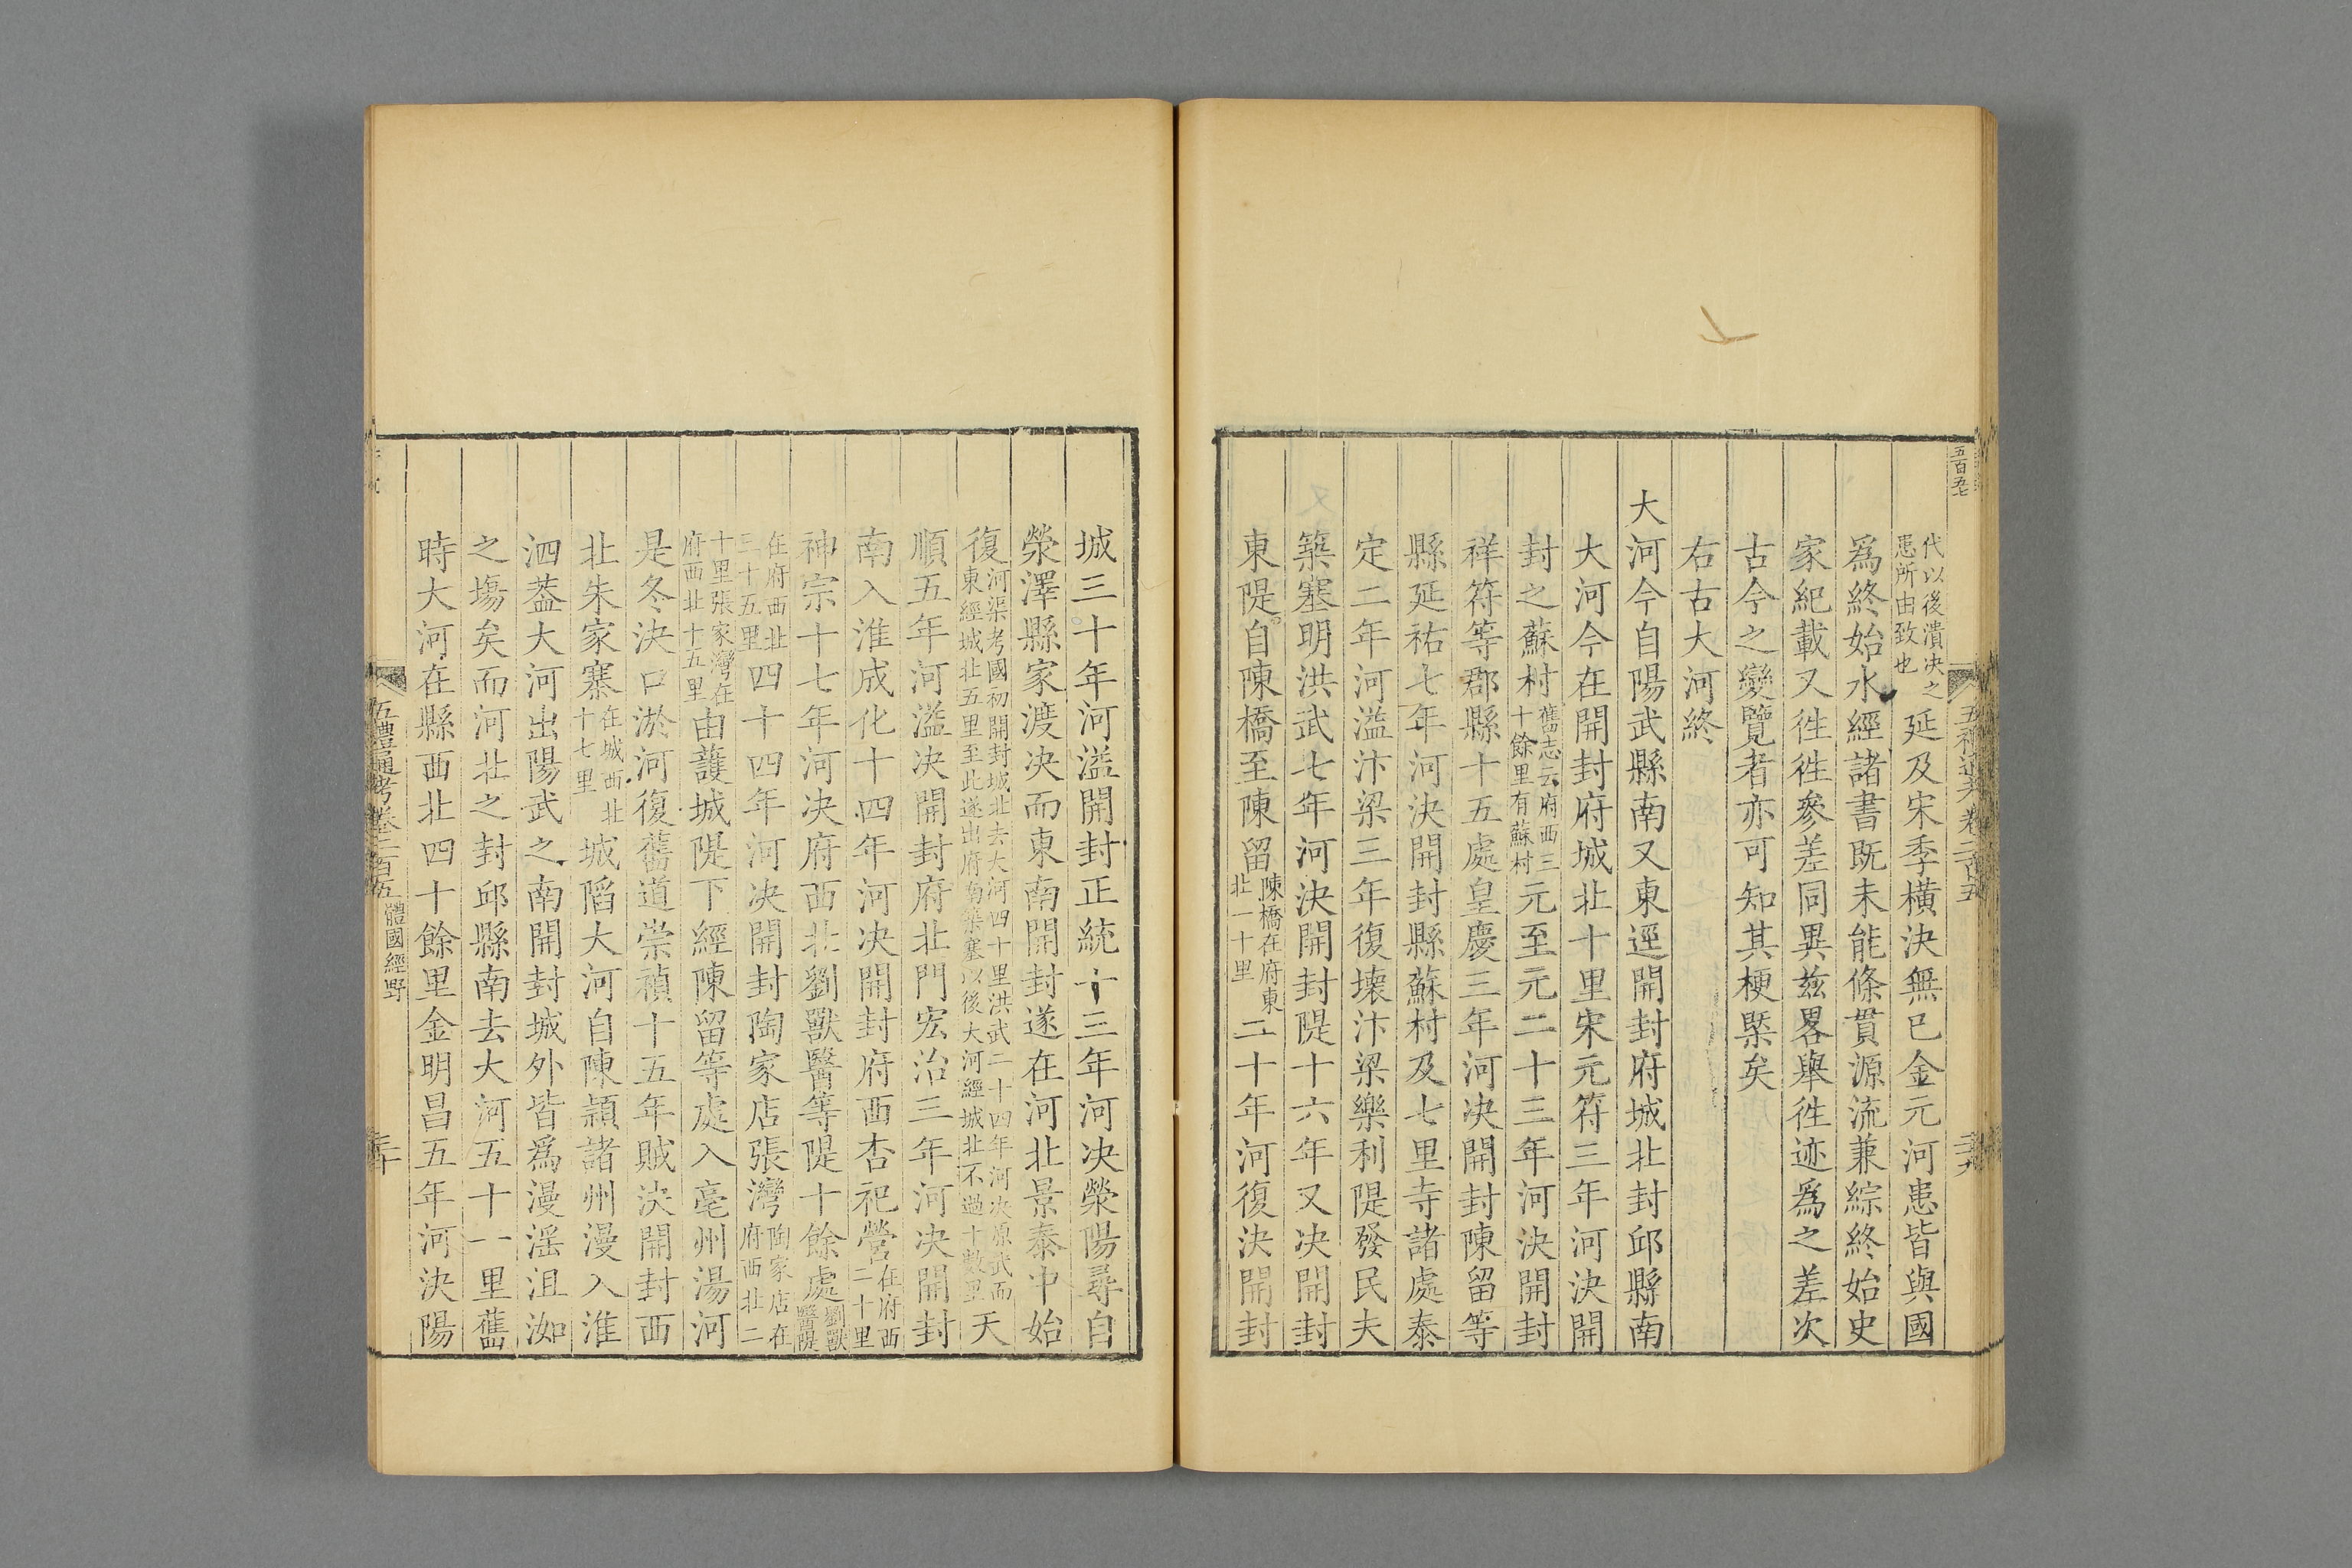 五百九七
代以後潰决之
患所由致也
延及宋季橫決無已金元河患皆與國
爲終始水經諸書既未能條貫源流兼綜終始史
家紀載又徃徃參差同異兹畧舉徃迹爲之差次
古今之變覽者亦可知其梗槩矣
右古大河終
大河今自陽武縣南又東逕開封府城北封邱縣南
大河今在開封府城北十里宋元符三年河決開
封之蘇村
舊志云府西三
十餘里有蘇村
元至元二十三年河決開封
祥符等郡縣十五處皇慶三年河決開封陳留等
縣延祐七年河決開封縣蘇村及七里寺諸處泰
定二年河溢汴梁三年復壞汴梁樂利隄發民夫
築塞明洪武七年河決開封隄十六年又決開封
東隄自陳橋至陳留
陳橋在府東
北一十里
二十年河復決開封
城三十年河溢開封正統十三年河决滎陽尋自
滎澤縣家渡决而東南開封遂在河北景泰中始
復
河渠考國初開封城北去大河四十里洪武二十四年河決原武而
東經城北五里至此遂出府南築塞以後大河經城北不過十數里
天
順五年河溢决開封府北門宏治三年河决開封
南入淮成化十四年河决開封府西杏祀營
在府西
二十里
神宗十七年河決府西北劉獸醫等隄十餘處
劉獸
醫隄
在府西北
三十五里
四十四年河決開封陶家店張灣
陶家店在
府西北二
十里張家灣在
府西北十五里
由護城隄下經陳留等處入亳州湯河
是冬決口淤河復舊道崇禎十五年賊決開封西
北朱家寨
在城西北
十七里
城陷大河自陳潁諸州漫入淮
泗葢大河出陽武之南開封城外皆爲漫淫沮洳
之場矣而河北之封邱縣南去大河五十一里舊
時大河在縣西北四十餘里金明昌五年河決陽
五禮通考卷二百五
體國經野
三十